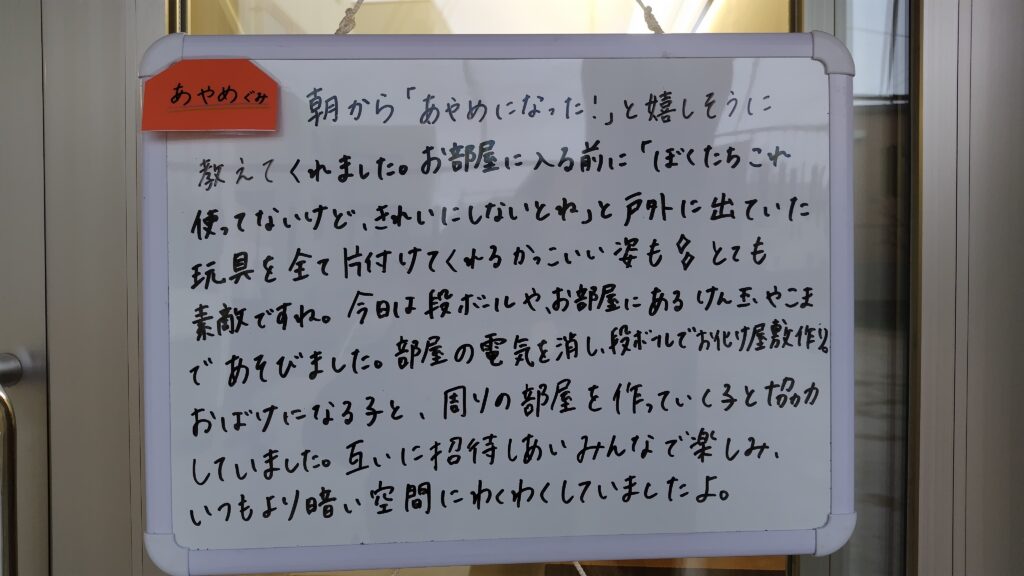 あやめぐみ
朝から「あやめになった！」と嬉しそうに
教えてくれました。お部屋に入る前に「ぼくたちこれ
使ってないけど、きれいにしないとね」と戸外に出ていた
玩具を全て片付けてくれるかっこいい姿も多とても
素敵ですね。今日は段ボールや、お部屋にあるけん玉やこま
であそびました。部屋の電気を消し、段ボールでお化け屋敷作り。
おばけになる子と、周りの部屋を作っていく子と協力
していました。互いに招待しあいみんなで楽しみ、
いつもより暗い空間にわくわくしていましたよ。